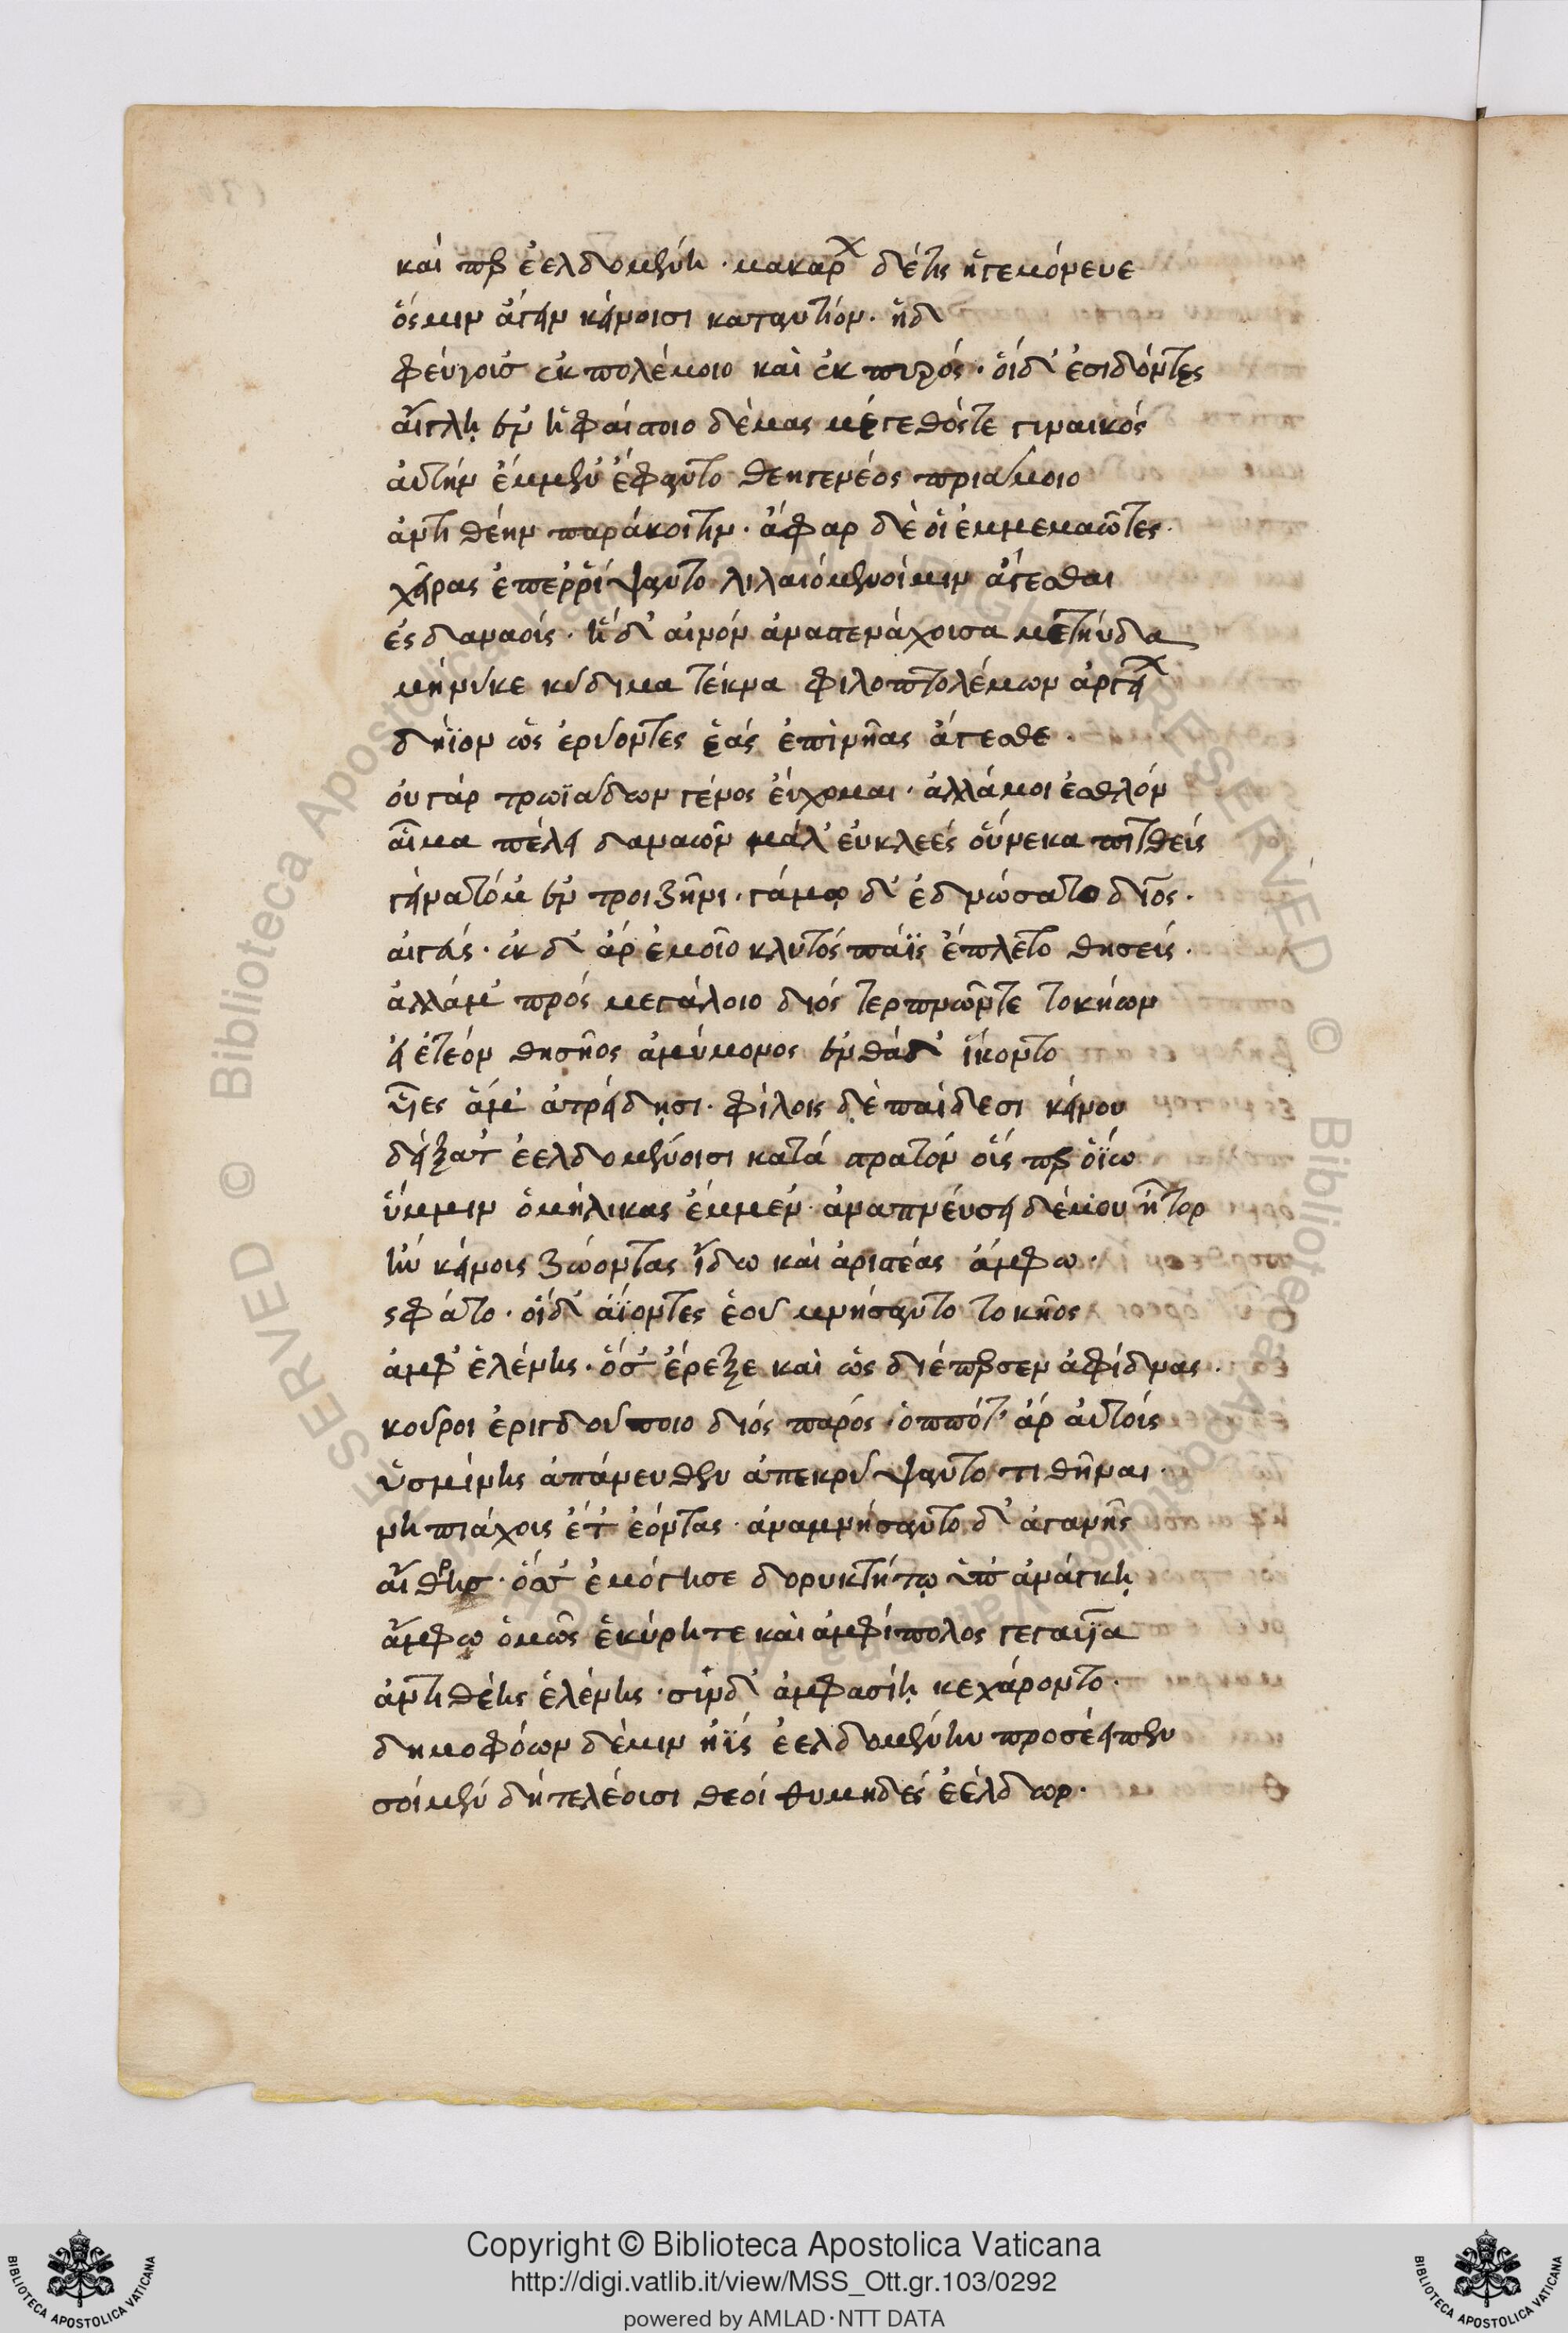 καί που ἐελδομένη · μακάρων δέ τις ἡγεμόνευε
ὅς μιν ἄγειν κείνοισι καταντίον · ἡδ
φεύγουσ' ἐκ πολέμοιο καὶ ἐκ πυρός · οἵδ' ἐσιδόντες
αἴγλῃ ἐν ἡφαίστοιο δέμας μέγεθός τε γυναικός
αὐτήν ἔμμεν ἔφαντο θεηγενέος πριάμοιο
ἀντιθέην παράκοιτιν · ἄφαρ δὲ οἱ ἐμμεμαῶτες ·
χεῖρας ἐπερρίψαντο λιλαιόμενοί μιν ἄγεσθαι
ἐς δαναούς · ἡ δ' αἰνόν ἀναστενάχουσα μετηύδα
μή νύ με κύδιμα τέκνα φιλοπτολέμων ἀργείων
δήϊον ὡς ἐρύοντες ἑάς ἐπὶ νῆας ἄγεσθε ·
οὐ γάρ τρωϊάδων γένος εὔχομαι · ἀλλά μοι ἐσθλόν
αἷμα πέλει δαναῶν μάλ' εὐκλεές οὕνεκα πιτθεύς
γείνατό μ' ἐν τροιζῆνι · γάμῳ δ' ἐδνώσατο δῖος ·
αἰγεύς · ἐκ δ' ἄρ ἐμοῖο κλυτός πάϊς ἔπλετο θησεύς ·
ἀλλά μ' πρός μεγάλοιο διός τερπνῶν τε τοκήων
εἰ ἐτεόν θησῆος ἀμύμονος ἐνθάδ' ἵκοντο
υἷες ἅμ' ἀτρείδῃσι · φίλοις δὲ παίδεσι κείνου
δείξατ' ἐελδομένοισι κατά στρατόν οὕς που ὀΐω
ὕμμιν ὁμήλικας ἔμμεν · ἀναπνεύσει δέ μου ἦτορ
ἤν κείνους ζώοντας ἴδω καὶ ἀριστέας ἄμφω ·
ὣς φάτο · οἵδ' ἀΐοντες ἑοῦ μνήσαντο τοκῆος
ἀμφ' ἑλένης · ὅσ' ἔρεξε καὶ ὡς διέπερσεν ἀφίδνας ·
κοῦροι ἐριγδούποιο διός πάρος · ὁππότ' ἄρ αὐτούς
ὑσμίνης ἀπάνευθεν ἀπεκρύψαντο τιθῆναι ·
νηπιάχους ἔτ' ἐόντας · ἀναμνήσαντο δ' ἀγαυῆς
αἴθρης · ὅσσ' ἐμόγησε δορυκτήτῳ ὑπ' ἀνάγκῃ
ἄμφω ὁμῶς ἑκυρή τε καὶ ἀμφίπολος γεγαυῖα
ἀντιθέης ἑλένης · σὺν δ' ἀμφασίῃ κεχάροντο ·
δημοφόων δέ μιν ἠΰς ἐελδομένην προσέειπεν
σοί μέν δή τελέουσι θεοί θυμηδές ἐέλδωρ ·
Copyright © Biblioteca Apostolica Vaticana
http://digi.vatlib.it/view/MSS_Ott.gr.103/0292
powered by AMLAD·NTT DATA